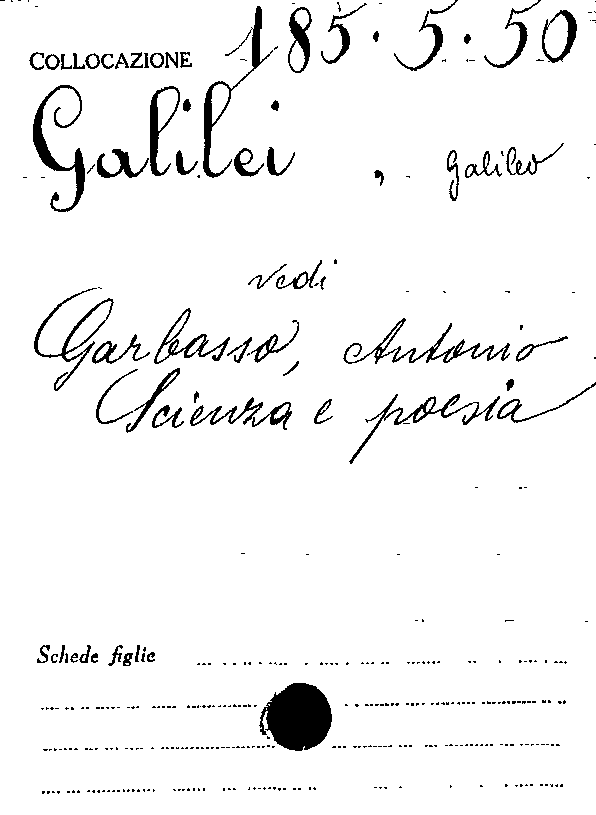 COLLOCAZIONE 185.5.50
Galilei, Galileo
vedi
Garbasso, Antonio
Scienza e poesia
Schede figlie